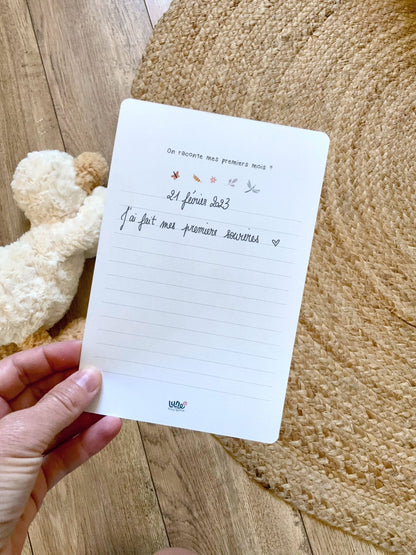 On raconte mes premiers mois ?
21 février 2023
J'ai fait mes premiere sourires ♡